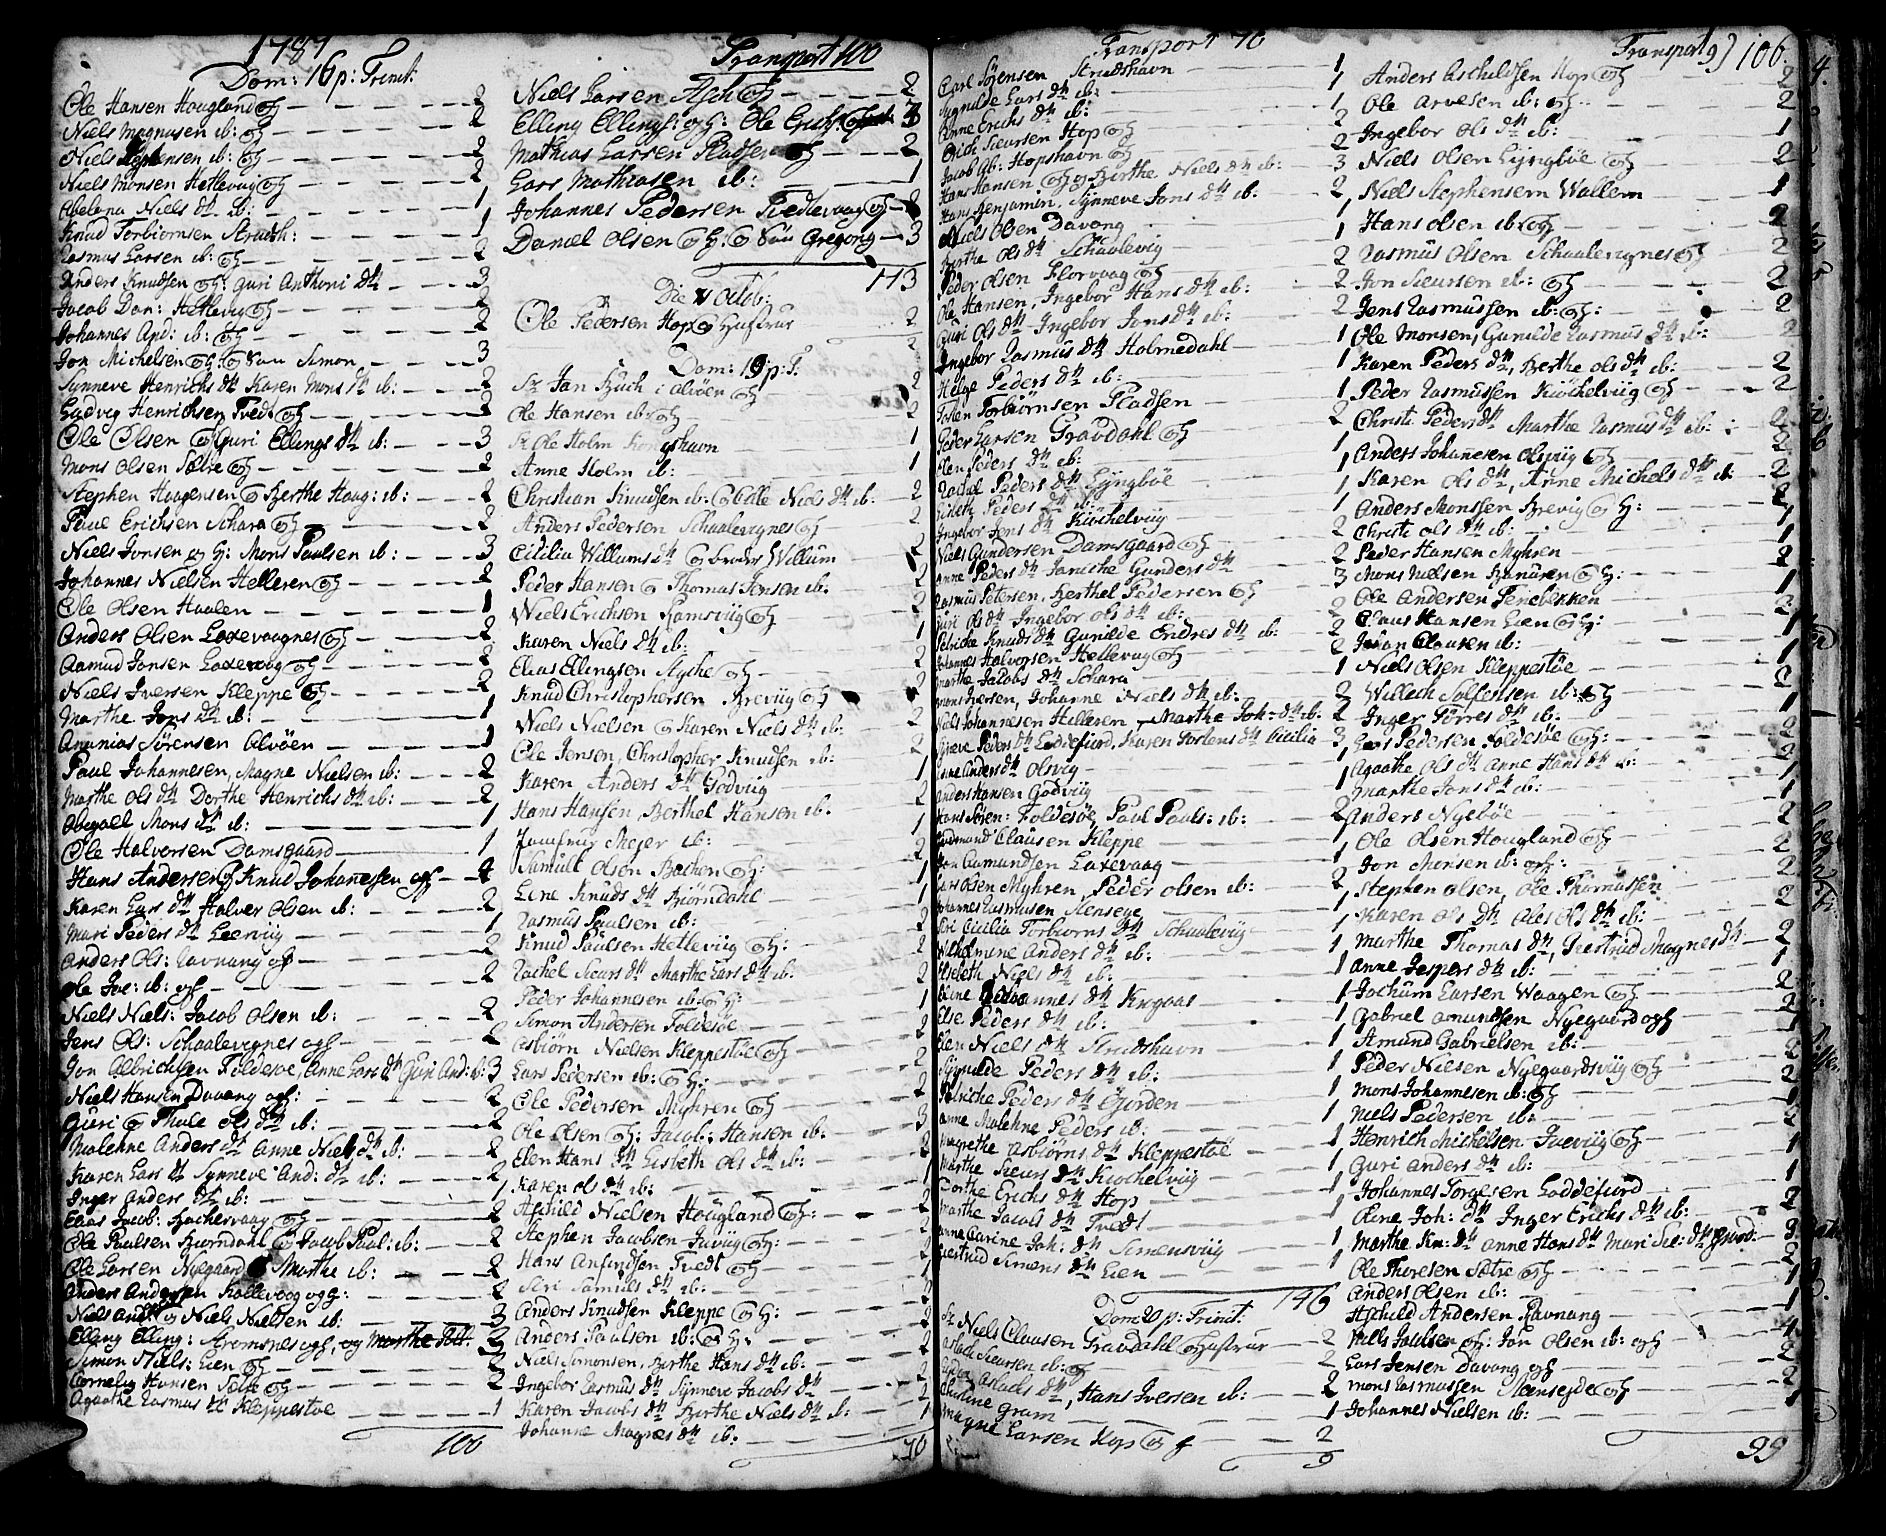 1787
Dom: 16 p: Trinit:
Ole Hansen Hougland og H — 2
Niels Magnusen ib: og H — 2
Niels Stephensen ib: og H — 2
Niels Monsen Hetlevig og H — 2
Abelona Niels dtr ib: — 1
Knud Torbiørnsen Strudsh: — 1
Rasmus Larsen ib: og H — 2
Anders Knudsen og H: Guri Anthoni dtr — 3
Jacob Dan: Hetlevig og H — 2
Johannes And: ib: og H — 2
Jon Michelsen og H: og Søn Simon — 3
Synneve Henrichs dtr Karen Mons dtr ib: — 2
Ludvig Henrichsen Tvedt og H — 2
Ole Olsen og H Guri Ellings dtr ib: — 3
Mons Olsen Sætre og H — 2
Stephen Haagensen og Berthe Haag: ib: — 2
Paul Erichsen Schara og H — 2
Niels Jonsen og H: Mons Paulsen ib: — 3
Johannes Nielsen Helleren og H — 2
Ole Olsen Haalen — 1
Anders Olsen Laxevaagnes og H — 2
Aamud Jonsen Laxevaag og H — 2
Niels Iversen Kleppe og H — 2
Marthe Jons dtr ib: — 1
Ananias Sörensen Alvöen — 1
Paul Johannesen, Magne Nielsen ib: — 2
Marthe Ols dtr Dorthe Henrichs dtr ib: — 2
Abigael Mons dtr ib: — 1
Ole Halvorsen Damsgaard — 1
Hans Andersen og Knud Johannesen og H — 4
Karen Lars dtr Halver Olsen ib: — 2
Mari Peders dtr Leervig — 1
Anders Ols: Ravnang og H — 2
Ole Ive: ib: og H — 2
Niels Niels: Jacob Olsen ib: — 2
Jens Ols: Schaalevignes og H — 2
Jon Albrichtsen Foldesøe, Anne Lars dtr Guri And: ib: 3
Niels Hansen Davang og H: — 2
Guri og Thule Ols dtr ib: — 2
Malenne Anders dtr Anne Niels dtr ib: — 2
Karen Lars dtr Synneve And: dtr ib: — 2
Inger Anders dtr ib: — 1
Elias Jacob: Bachervaag og H — 2
Ole Paulsen Biørndahl og Jacob Paul: ib: — 2
Ole Larsen Nyegaard og Marthe ib: — 2
Anders Andersen Kallevaag og H: — 2
Niels And: og Niels Nielsen ib: — 3
Elling Elling: Strømsnes og H, — 2
Simon Niels: Lien og H — 2
Cornelius Hansen Sælle og H — 2
Agaathe Rasmus dtr Kleppestøe — 1
100
Transport 100
Niels Larsen Ask og H — 2
Elling Ellings: og H: Ole Erichs: — 4
Mathias Larsen Pladsen og H — 2
Lars Mathiasen ib: — 1
Johannes Pedersen Tvedtevaag og H — 2
Daniel Olsen og H: og Søn Gregorius — 3
113
Ole Pedersen Hop og Hustrue — 2
Dom: 19 p: T:
Sr Jan Buch i Alvöen og H — 2
Ole Hansen ib: og H — 2
Sr Ole Holm Kongshavn — 1
Anne Holm ib: — 1
Christian Knudsen ib: og Olle Niels dtr ib: — 2
Anders Pedersen Schaalevignes og H — 2
Cicilia Willums dtr og broder Willum — 2
Peder Hansen og Thomas Jensen ib: — 2
Niels Erichsen Ramsviig og H — 2
Karen Niels dtr ib: — 1
Elias Ellingsen Ryche og H — 2
Knud Christophersen Breviig og H — 2
Niels Nielsen og Karen Niels dtr ib: — 2
Ole Jensen, Christopher Knudsen ib: — 2
Karen Anders dtr Godviig — 1
Hans Hansen, Berthel Hansen ib: — 2
Jomfrue Mejer ib: — 1
Samuel Olsen Bachen og H: — 2
Lene Knuds dtr Biörndahl — 1
Rasmus Paulsen ib: — 1
Knud Paulsen Hetleviig og H: — 2
Rachel Siurs dtr Marthe Lars dtr ib: — 2
Peder Johannesen ib: og H: — 2
Simon Andersen Foldesøe — 1
Asbiørn Nielsen Kleppestøe og H — 2
Lars Pedersen ib: og H: — 2
Ole Pedersen Myhren og H — 2
Ole Olsen og H: Jacob: Hansen ib: — 3
Elen Hans dtr Lisbeth Ols dtr ib: — 2
Karen Ols dtr ib: — 1
Aschild Nielsen Hougland og H: — 2
Stephen Jacobsen Juviig og H: — 2
Hans Ansindsen Tvedt og H — 2
Siri Samuels dtr ib: — 1
Anders Knudsen Kleppe og H: — 2
Anders Paulsen ib: og H: — 2
Niels Simonsen, Berthe Hans dtr ib: — 2
Ingebor Rasmus dtr Synneve Jacobs dtr — 2
Karen Jacobs dtr Berthe Niels dtr ib: — 2
Johanne Magnes dtr ib: — 1
70
Transport 70
Carl Sörensen Strudshavn — 1
Gunilde Lars dtr ib: — 1
Anne Erichs dtr ib: — 1
Erich Siversen Hop og H — 2
Jacob Ab: Hopshavn og H — 2
Hans Hansen og H og Berthe Niels dtr ib: — 3
Hans Benjamin: Synneve Jons dtr ib: — 2
Niels Olsen Davang — 1
Berthe Ols dtr Schaalevig — 1
Peder Olsen Florvaag og H — 2
Ole Hansen, Ingebor Hans dtr ib: — 2
Guri Ols dtr Ingebor Jons dtr ib: — 2
Ingebor Rasmus dtr Holmedahl — 1
Helge Peders dtr ib: — 1
Josten Torbiörnsen Pladsen — 1
Peder Larsen Gravdahl og H — 2
Elen Peders dtr ib: — 1
Rachel Peders dtr Lyngbøe — 1
Lisbeth Peders dtr ib: — 1
Ingebor Jens dtr Kiøchelviig — 1
Niels Gundersen Damsgaard og H — 2
Anne Peders dtr Janiche Gunders dtr — 2
Rasmus Petersen, Berthel Pedersen og H — 3
Guri Ols dtr Ingebor Ols dtr ib: — 2
Petriche Knuds dtr Gunilde Endres dtr ib: — 2
Johannes Halvorsen Hetlevig og H — 2
Marthe Jacobs dtr Schara — 1
Mons Iversen, Johanne Niels dtr ib: — 2
Niels Johannesen Helleren, Marthe Joh: dtr ib: — 2
Synneve Peders dtr Loddefiord, Karen Torstens dtr Cicilia — 3
Anne Anders dtr Olsvig — 1
Anders Hansen Godviig — 1
Hans Sören: Foldesøe, Paul Pauls: ib: — 2
Clausen Kleppe — 1
Jon Aamundsen Laxevaag — 1
Lars Olsen Myhren, Peder Olsen ib: — 2
Johannes Rasmusen Stenseye — 1
Cicilia Torbiørns dtr Schaaleviig — 1
Wilhelmine Anders dtr ib: — 1
Elsebeth Niels dtr ib: — 1
Johannes dtr Krogaas — 1
Else Peders dtr ib: — 1
Elen Niels dtr Strudshavn — 1
Gunilde Peders dtr ib: — 1
Petriche Peders dtr Gjorden — 1
Anne Malehne Peders ib: — 1
Margrethe Asbiørns dtr Kleppestøe — 1
Marthe Siurs dtr Kiöchelviig — 1
Dorthe Erichs dtr Hop — 1
Marthe Jacobs dtr Tvedt — 1
Anne Carine Joh: dtr Simensviig — 1
Giertrud Simens dtr Lien — 1
146
Dom 20 p: Trinit:
Sr Niels Clausen Gravdahl og Hustrue — 2
Aslach Siversen ib: og H — 2
Aslachs dtr, Hans Iversen ib: — 2
Christine Gram — 1
Magne Larsen Hop og H — 2
9
Transport 9) 106.
Anders Aschildsen Hop og H — 2
Ole Arvesen ib: og H — 2
Ingebor Ols dtr ib: — 1
Niels Olsen Lyngbøe og H — 2
Niels Stephensen Wallem — 1
Hans Olsen ib: og H — 2
Rasmus Olsen Schaalevignes og H — 2
Jon Siversen ib: og H — 2
Jens Rasmussen ib: og H: — 2
Ole Monsen, Gunilde Rasmus dtr ib: — 2
Karen Peders dtr, Berthe Ols dtr ib: — 2
Peder Rasmussen Kiöchelviig og H — 2
Christi Peders dtr Marthe Rasmus dtr ib: — 2
Anders Johanesen Olsviig og H — 2
Karen Ols dtr, Anne Michels dtr ib: — 2
Anders Monssen Brevig og H: — 2
Christi Ols dtr ib: — 1
Peder Hansen Myhren — 1
Mons Nielsen Hanuren og H: — 2
Ole Andersen Tenebekken — 1
Claus Hansen Lien og H: — 2
Johan Clausen ib: — 1
Niels Olsen Kleppestøe — 1
Willach Solfensen ib: og H — 2
Inger Törres dtr ib: — 1
Lars Pedersen Foldesøe og H: — 2
Agaathe Ols dtr Anne Hans dtr ib: — 2
Marthe Jons dtr ib: — 1
Anders Nyebøe — 1
Ole Olsen Hougland og H — 2
Jon Monsen ib: og H: — 2
Stephen Olsen, Ole Thomassen — 2
Karen Ols dtr Ales Ols dtr ib: — 2
Marthe Thomas dtr, Giertrud Magnes dtr — 2
Anne Jespers dtr ib: — 1
Jochum Larsen Waagen og H — 2
Gabriel Amundsen Nyegaard og H — 2
Amund Gabrielsen ib: — 1
Peder Nielsen Nyegaardsviig og H — 2
Mons Johannesen ib: og H — 2
Niels Pedersen ib: — 1
Henrich Michelsen Juviig og H — 2
Guri Anders dtr ib: — 1
Johannes Torgesen Loddefiord — 1
Oline Joh: dtr Inger Erichs dtr ib: — 2
Marthe Kn: dtr Anne Hans dtr Mari Siv: dtr — 3
Ole Thoresen Sætre og H — 2
Anders Olsen ib: — 1
Aschild Andersen Ravnang — 1
Niels Paulsen og H: Jon Olsen ib: og H — 4
Lars Jensen Davang og H — 2
Mons Rasmussen Steenseyde og H — 2
Johannes Nielsen ib: — 1
99